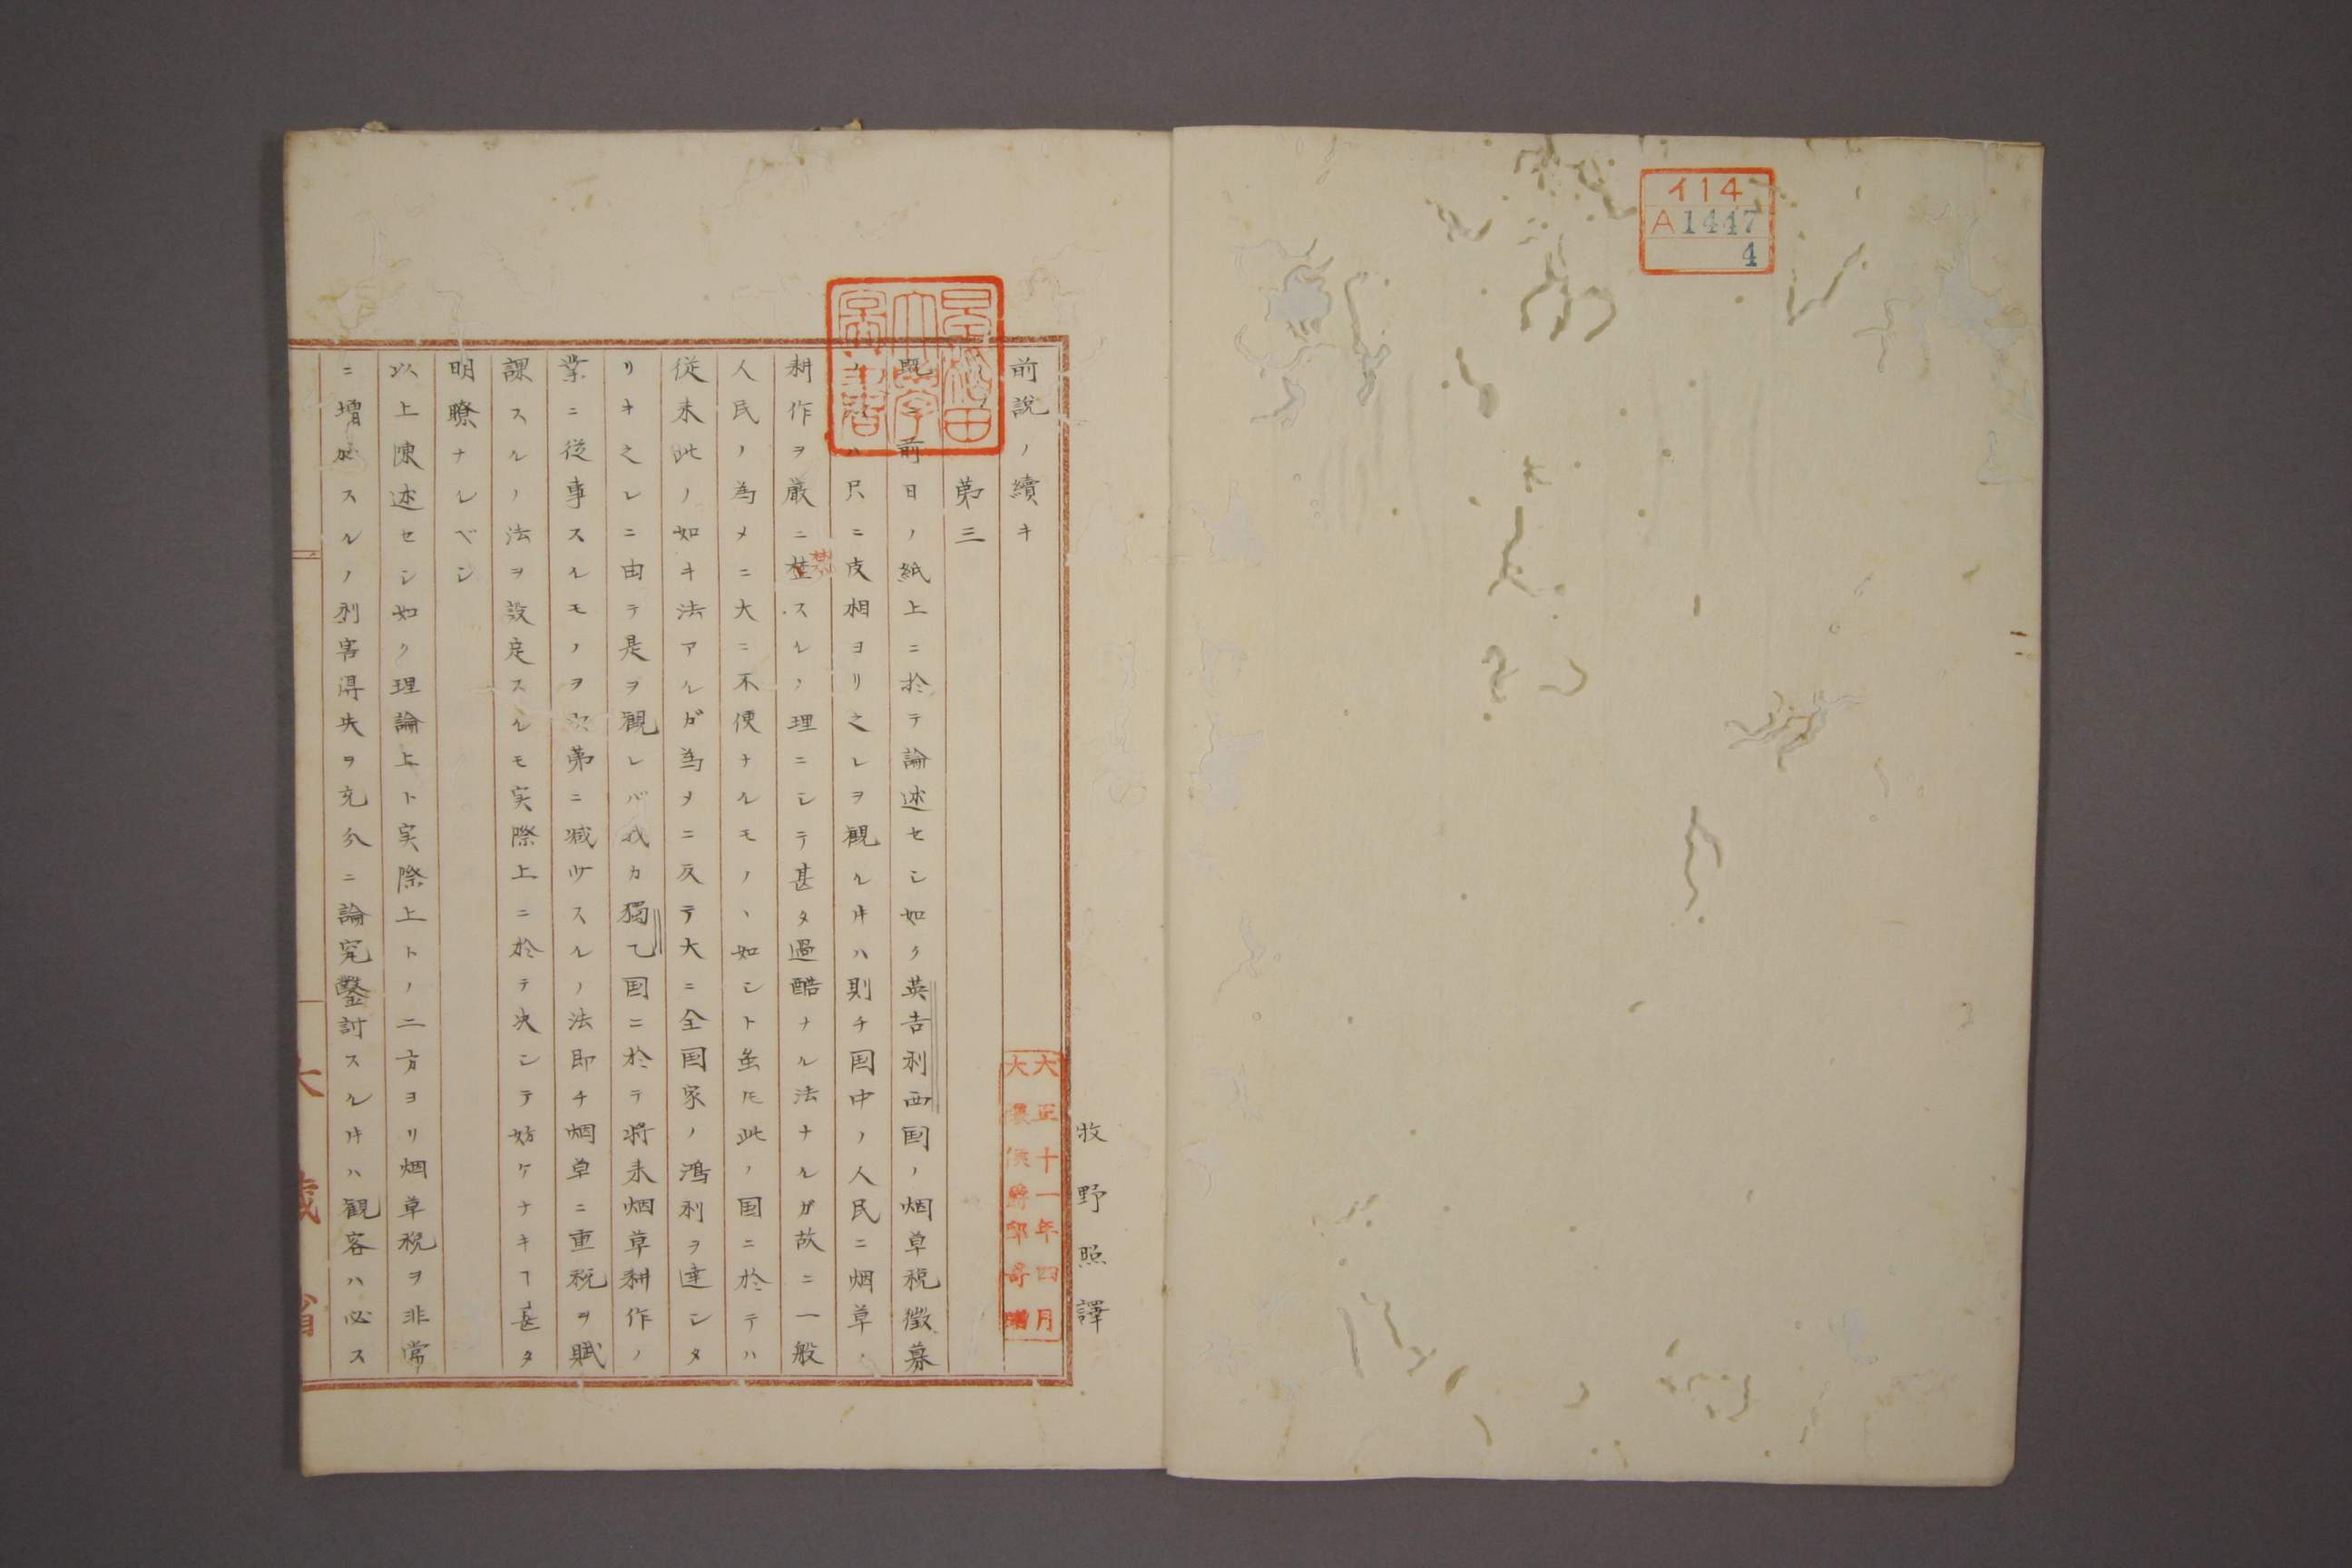 イ14
A1447
4
牧野照譯
大正十一年四月
大隈侯爵邸寄贈
前說ノ續キ
早稲田大学図書
第三
既ニ前日ノ紙上ニ於テ論述セシ如ク英吉利西国ノ烟草税徴募
ハ只ニ皮相ヨリ之レヲ観ル𪜈ハ則チ国中ノ人民ニ烟草
耕作ヲ厳ニ禁スルノ理ニシテ甚タ過酷ナル法ナルガ故ニ一般
人民ノ為メニ大ニ不便ナルモノヽ如シト雖𪜈此ノ国ニ於テハ
従来此ノ如キ法アルガ為メニ反テ大ニ全国家ノ鴻利ヲ達シタ
リキ之レニ由テ是ヲ観レバ我カ獨乙国ニ於テ将来烟草耕作ノ
業ニ従事スルモノヲ次第ニ减少スルノ法即チ烟草ニ重税ヲ賦
課スルノ法ヲ設定スルモ実際上ニ於テ决シテ妨ケナキヿ甚タ
明瞭ナルベシ
以上陳述セシ如ク理論上ト実際上トノ二方ヨリ烟草税ヲ非常
ニ増加スルノ利害得失ヲ充分ニ論究鑿討スル𪜈ハ観客ハ必ス
大蔵省